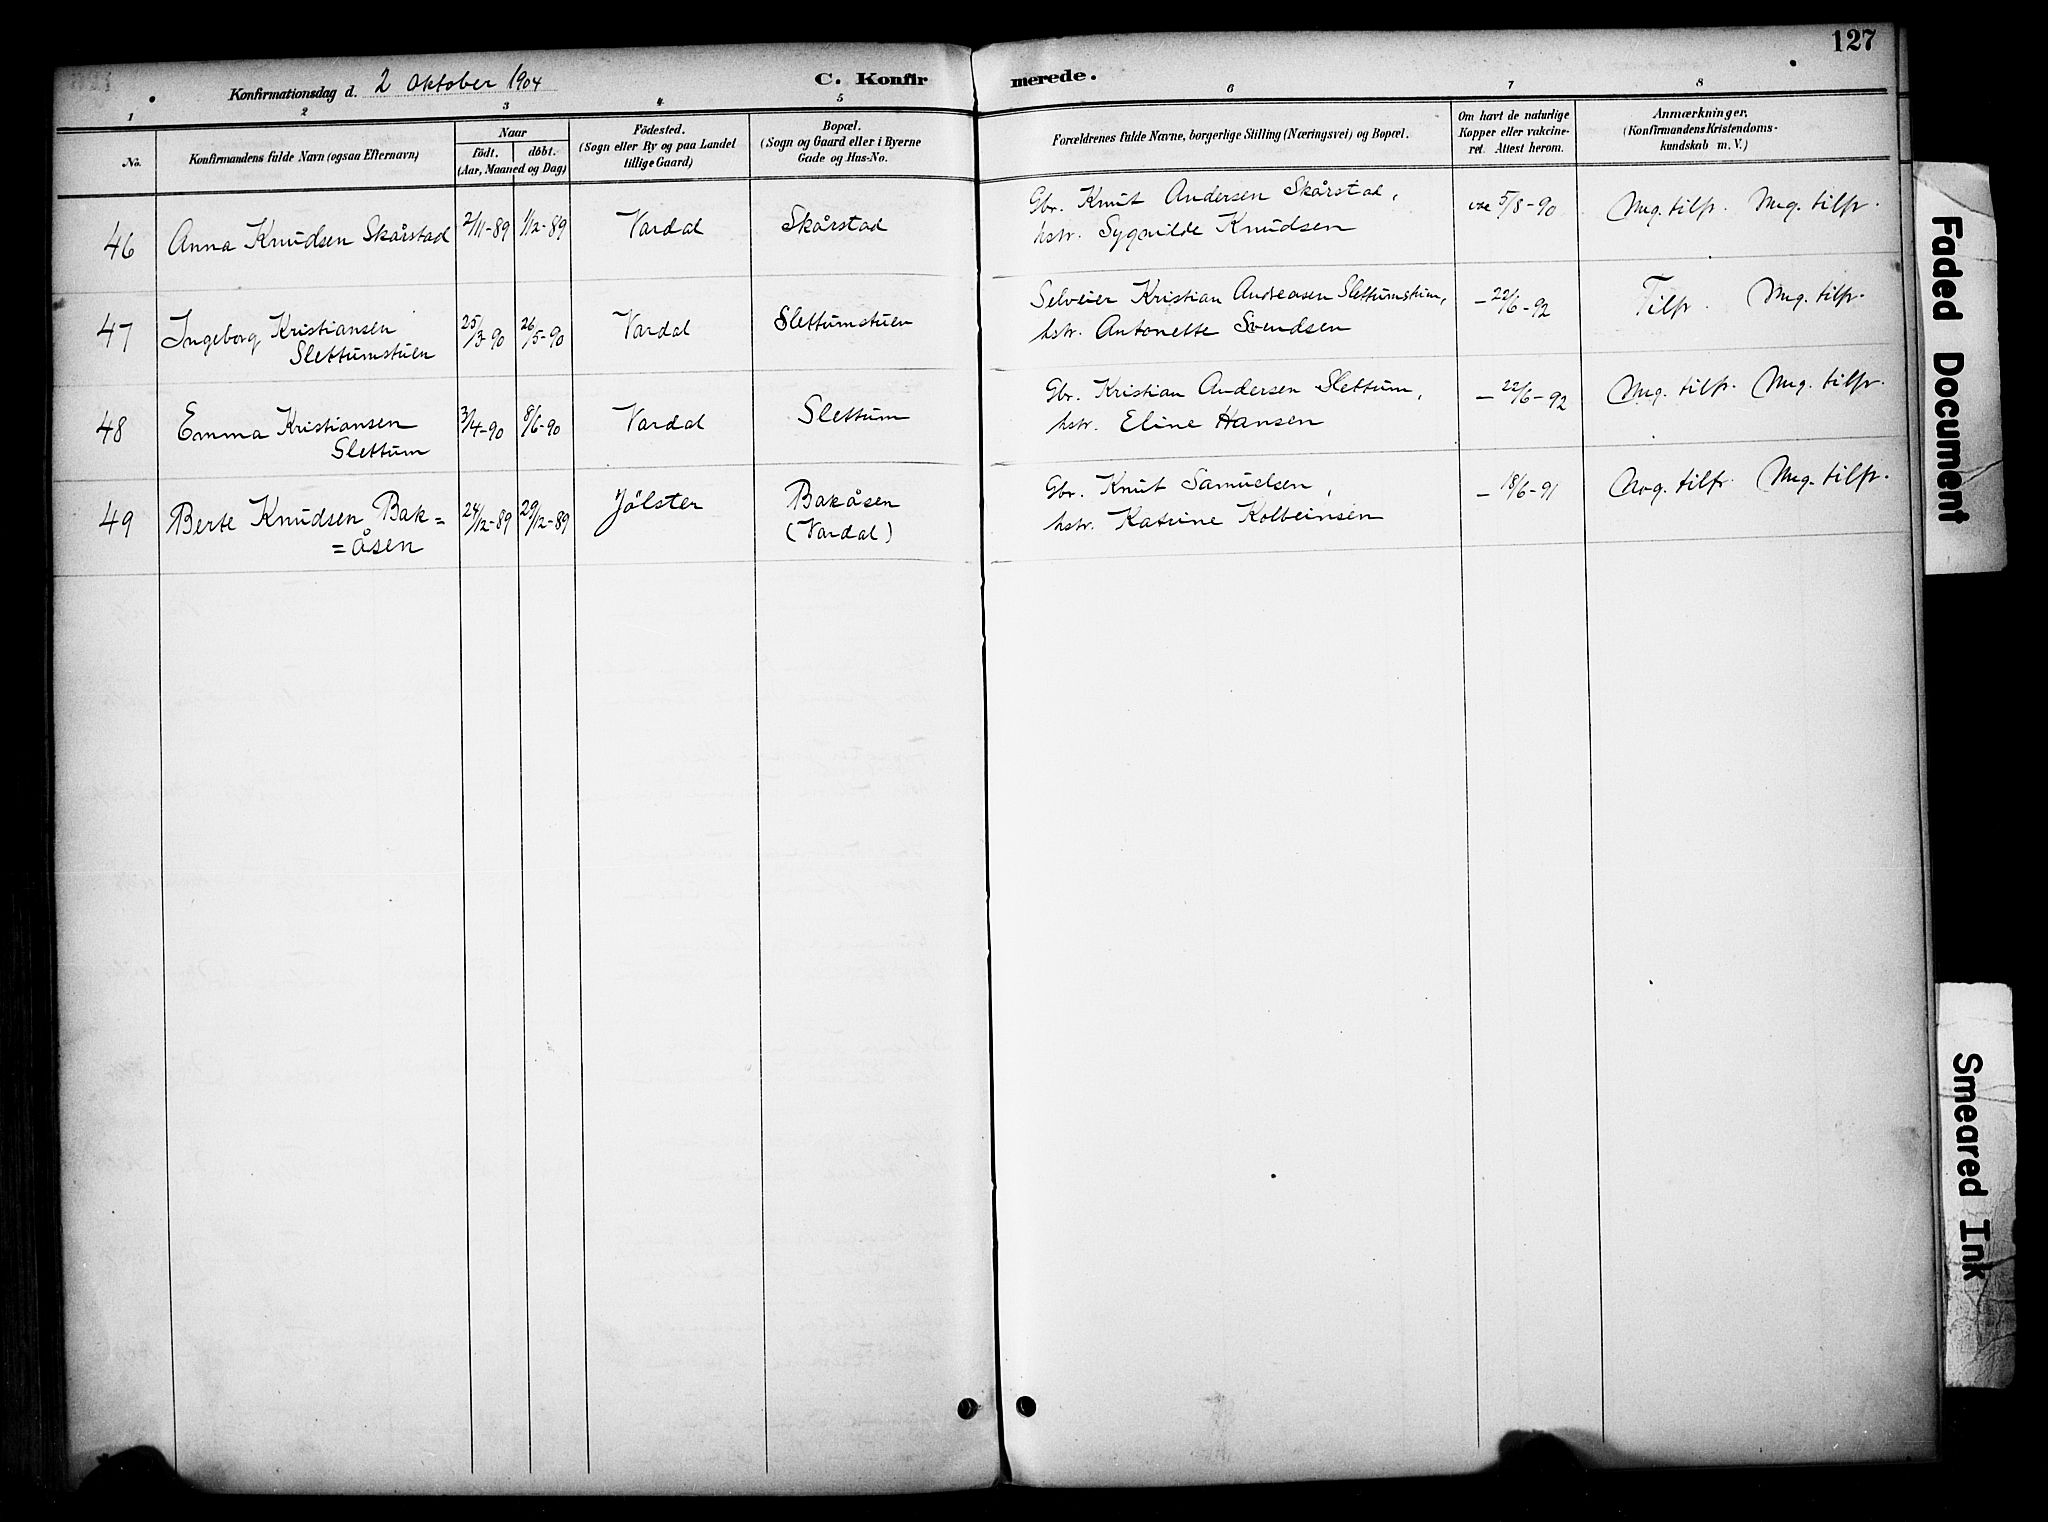 127
Konfirmationsdag d. 2 Oktober 1904
C. Konfirmerede.
1 2 3 4 5 6 7 8
No.
Konfirmandens fulde Navn (ogsaa Efternavn)
Naar
født. døbt.
(Aar, Maaned og Dag)
Fødested.
(Sogn eller By og paa Landet
tillige Gaard)
Bopæl.
(Sogn og Gaard eller i Byerne
Gade og Hus-No.
Forældrenes fulde Navne, borgerlige Stilling (Næringsvei) og Bopæl.
Om havt de naturlige
Kopper eller vakcine-
ret. Attest herom.
Anmærkninger.
(Konfirmandens Kristendoms-
kundskab m. V.)
46 Anna Knudsen Skårstad 2/11-89 1/12-89 Vardal Skårstad Gbr. Knut Andersen Skårstad, vac 5/8-90 Meg. tilfr. Meg. tilfr.
hstr. Sygnilde Knudsen
47 Ingeborg Kristiansen 25/3-90 26/5-90 Vardal Slettumstuen Selveier Kristian Andreasen Slettumstuen, - 22/6-92 Tilfr. Meg. tilfr.
Slettumstuen hstr. Antonette Svendsen
48 Emma Kristiansen 3/4-90 8/6-90 Vardal Slettum Gbr. Kristian Andersen Slettum, - 22/6-92 Meg. tilfr. Meg. tilfr.
Slettum hstr. Eline Hansen
49 Berte Knudsen Bak= 24/12-89 29/12-89 Jölster Bakåsen Gbr. Knut Samuelsen, - 18/6-91 Nog. tilfr. Meg. tilfr.
=åsen (Vardal) hstr. Katrine Kolbeinsen
Faded Document
Smeared Ink